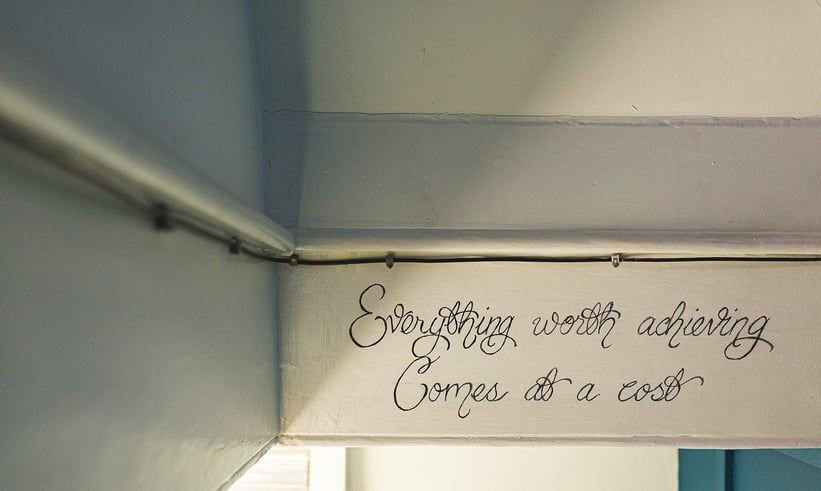 Everything worth achieving
Comes at a cost